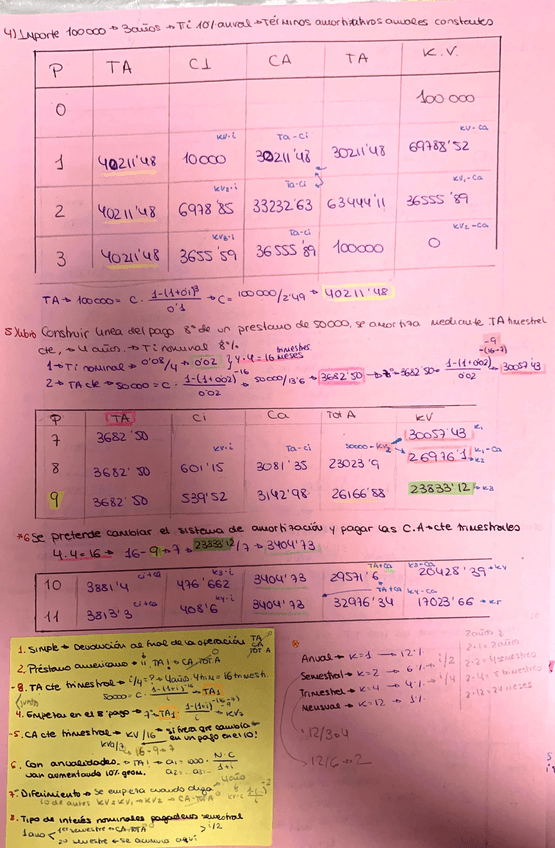 4) Importe 100000 → 3 años → Ti 10% anual → Términos amortizativos anuales constantes
P TA CI CA TA K.V.
0 100 000
KV·i Ta-Ci KV-Ca
1 40211'48 10000 30211'48 30211'48 69788'52
KV2·i Ta-Ci KV1-Ca
2 40211'48 6978'85 33232'63 63444'11 36555'89
KV3·i Ta-Ci KV2-Ca
3 40211'48 3655'59 36555'89 100000 0
TA → 100000 = C · 1-(1+0'1)³ / 0'1 → C = 100000/2'49 → 40211'48
Construir línea del pago 8º de un préstamo de 50000, se amortiza mediante TA trimestral
cte, → 4 años. → Ti nominal 8%
1 → Ti nominal → 0'08/4 → 0'02 } 4·4 = 16 trimestres meses
2 → TA cte → 50000 = C · 1-(1+0'02)^-16 / 0'02 → 50000/13'6 → 3682'50 → 3682'50 · 1-(1+0'02)^-9 / 0'02 → 30057'43
-(16-7)
P TA Ci Ca Tot A KV
7 3682'50 30057'43 K1
50000-KV2
8 3682'50 601'15 3081'35 23023'9 26976'1 K1-Ca K2
9 3682'50 539'52 3142'98 26166'88 23833'12 K3
*6 Se pretende cambiar el sistema de amortización y pagar las C.A → cte trimestrales
4·4 = 16 → 16-9 → 7 → 23833'12/7 → 3404'73
Ci+Ca K3·i TA+CA K3-Ca
10 3881'4 476'662 3404'73 29571'6 20428'39 KV
Ci+Ca K4·i TA+CA K4-Ca
11 3813'3 408'6 3404'73 32976'34 17023'66 K5
1. Simple → Devolución al final de la operación TA CA TOT·A
2. Préstamo americano → II, TA! → CA, TOT·A
3. TA cte trimestral → i/4 = ? → 4 años·4 trim = 16 trimest.
50000 = C · 1-(1+i)^-16 / i → TA1
4. Empezar en el 8º pago → 7 → TA1 · 1-(1+i)^-(16-7) / i → KV2
-9
5. CA cte trimestral → KV/16 → si fuera que cambia
en un pago en el 10!
KV9/7, 16-9 → 7
6. Con anualidades → TA! → a1 = 1000 · N·C / 1+i
van aumentando 10% geom. a2 = a1·
7. Diferimiento → Se empieza cuando diga
8. Tipo de interés nominales pagadero semestral
1 año < 1er semestre → CA-TOTA > i/2
2º semestre → Se acumula aquí
Anual → K=1 → 12%
Semestral → K=2 → 6% → i/2
Trimestral → K=4 → 4% → i/4
Mensual → K=12 → 1%
12/3 = 4
12/6 → 2
2 años
2·1 = 2 años
2·2 = 4 semestres
2·12 = 24 meses